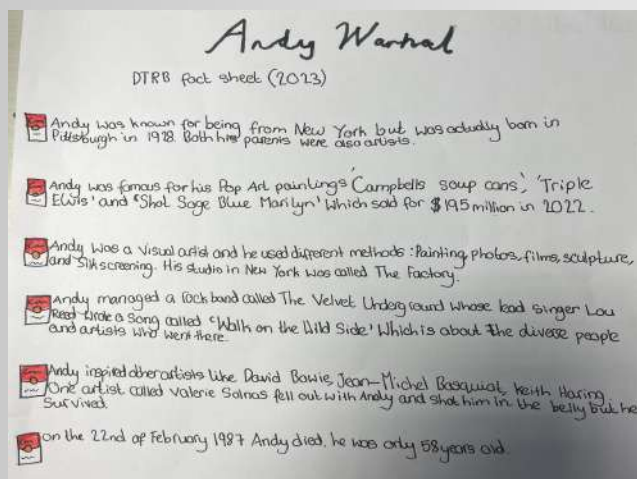 Andy Warhal
DTRB fact sheet (2023)
Andy was known for being from New York but was actually born in
Pittsburgh in 1928. Both his parents were also artists.
Andy was famous for his Pop Art paintings 'Campbells soup cans', 'Triple
Elvis' and 'Shot Sage Blue Marilyn' which sold for $195 million in 2022.
Andy was a visual artist and he used different methods: Painting, photos, films, sculpture,
and Silkscreening. His studio in New York was called The Factory.
Andy managed a rock band called The Velvet Underground whose lead singer Lou
Reed wrote a song called 'Walk on the Wild Side' which is about the diverse people
and artists who went there.
Andy inspired other artists like David Bowie, Jean-Michel Basquiat, Keith Haring.
One artist called Valerie Solnas fell out with Andy and shot him in the belly but he
Survived.
on the 22nd of February 1987 Andy died. he was only 58 years old.